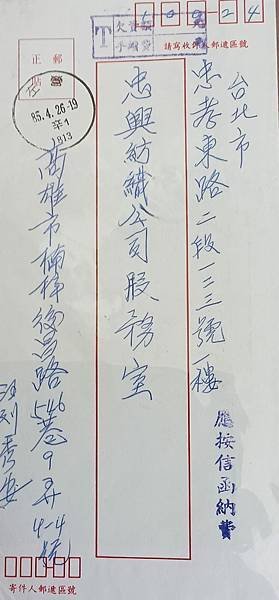 欠資
手續費
T
10024
請寫收件人郵遞區號
台北市
忠孝東路二段一三三號一樓
應按信函納費
忠興紡織公司股務室
正郵
貼票
85.4.26-19
高雄市楠梓後昌路546巷9弄4-4號
劉秀
寄件人郵遞區號